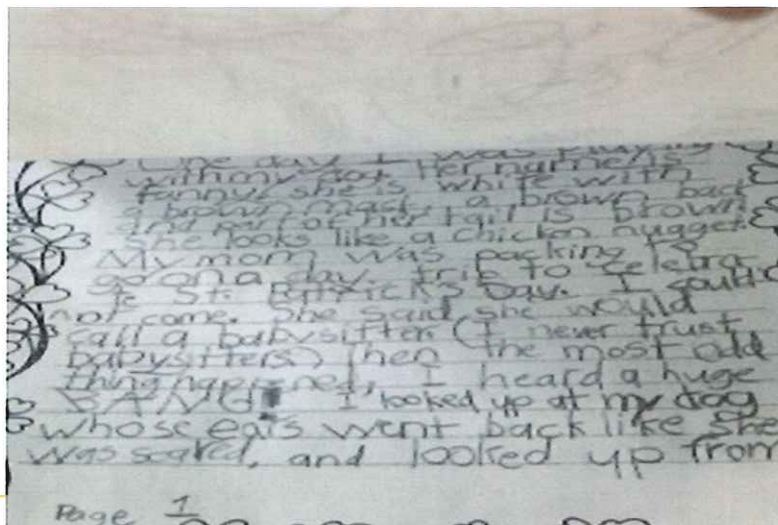 One day I was playing
with my dog. Her name is
funny, she is white with
a brown mask, a brown back
and part of her tail is brown
she looks like a chicken nugget
My mom was packing to
go on a day trip to celebra
te St. Patrick's Day. I
not come. She said she would
call a babysitter (I never trust
babysitters) Then the most odd
thing happened, I heard a huge
BANG I looked up at my dog
whose ears went back like she
was scared, and looked up from
Page 1